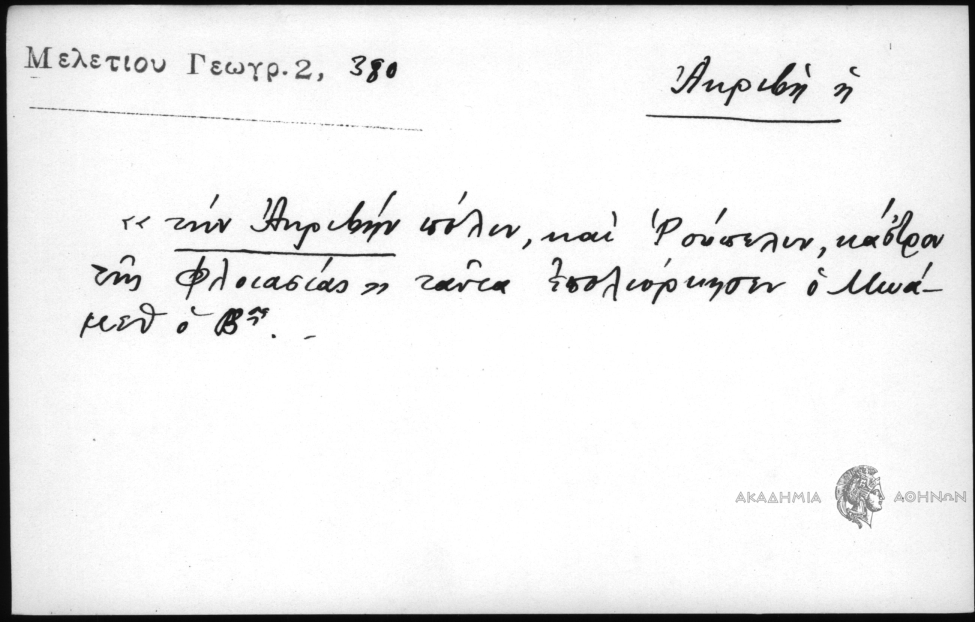 Μελετίου Γεωγρ. 2, 380
Ἀκριβὴ ἡ
« τὴν Ἀκριβὴν πόλιν, καὶ Ῥούπελιν, κάστρον
τῆς Φλοιασίας » ταῦτα ἐπολιόρκησεν ὁ Μωά-
μεθ ὁ Βος. -
ΑΚΑΔΗΜΙΑ ΑΘΗΝΩΝ